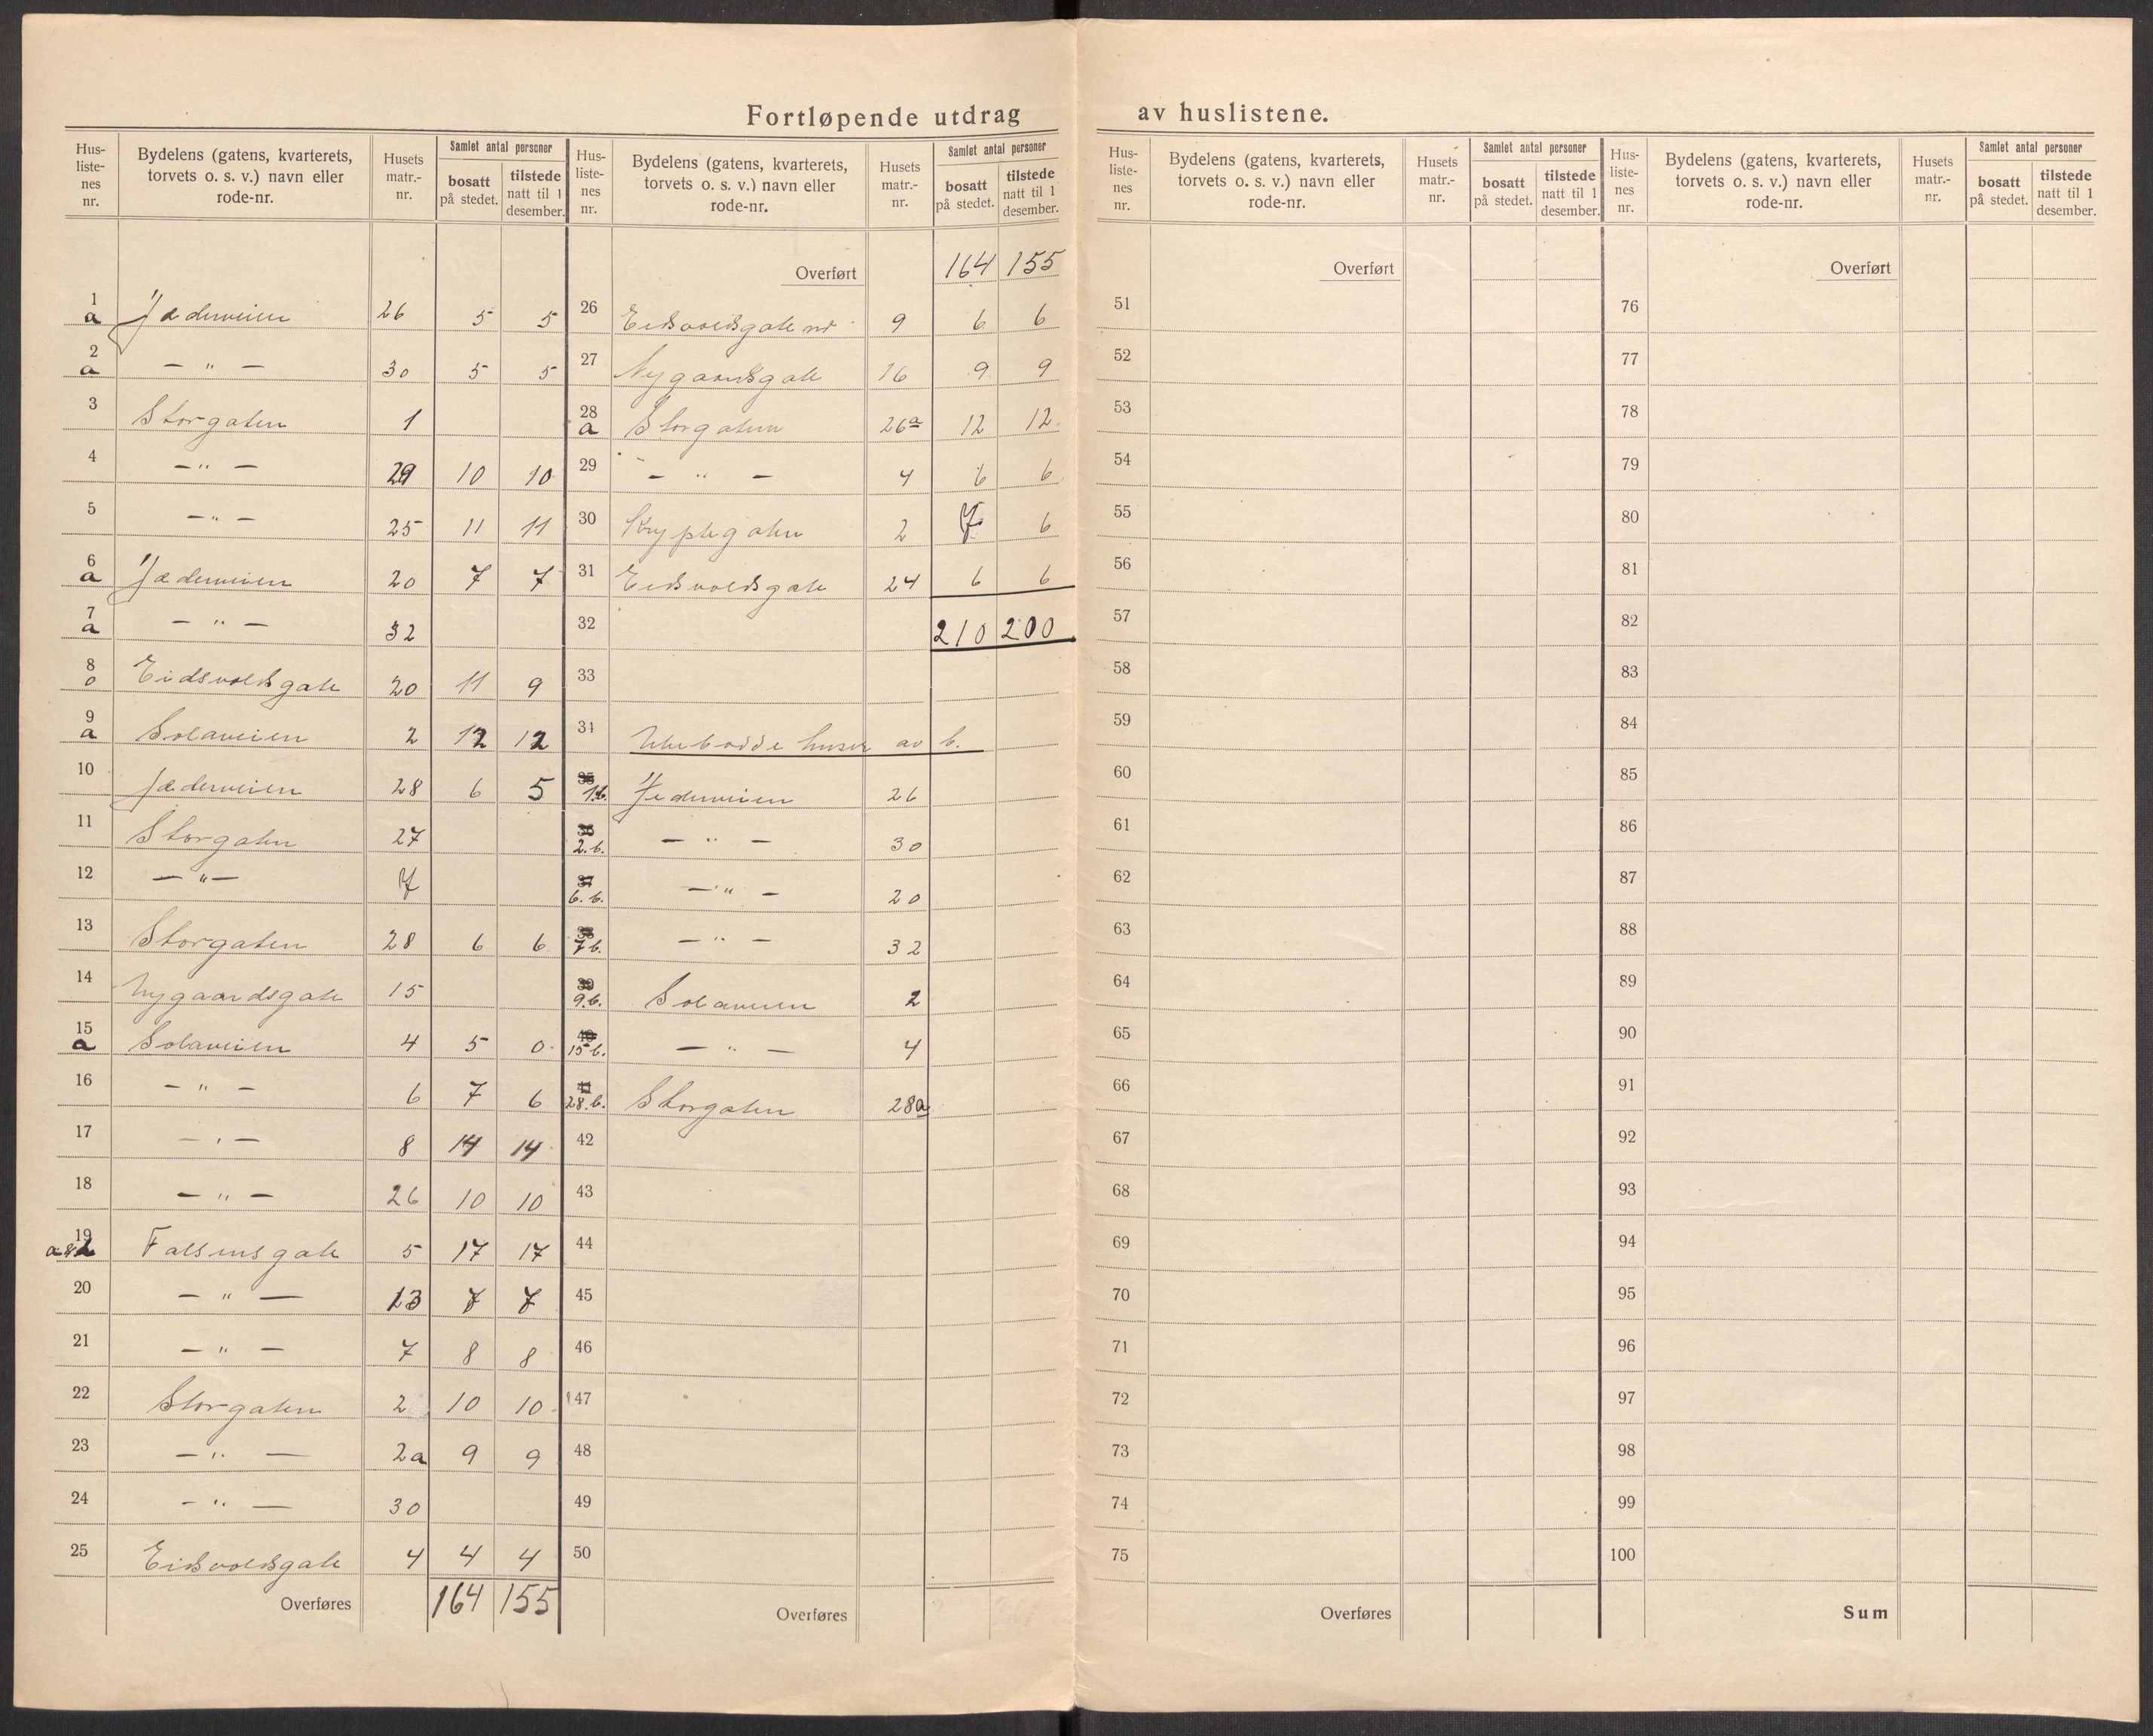 Fortløpende utdrag av huslistene.
Hus-listenes nr. | Bydelens (gatens, kvarterets, torvets o. s. v.) navn eller rode-nr. | Husets matr.-nr. | Samlet antal personer bosatt på stedet. | tilstede natt til 1 desember.
1 a | Jæderveien | 26 | 5 | 5
2 a | — " — | 30 | 5 | 5
3 | Storgaten | 1
4 | — " — | 29 | 10 | 10
5 | — " — | 25 | 11 | 11
6 a | Jæderveien | 20 | 7 | 7
7 a | — " — | 32
8 | Eidsvoldsgate | 20 | 11 | 9
9 a | Solaveien | 2 | 12 | 12
10 | Jæderveien | 28 | 6 | 5
11 | Storgaten | 27
12 | — " — | 7
13 | Storgaten | 28 | 6 | 6
14 | Nygaardsgate | 15
15 a | Solaveien | 4 | 5 | 0
16 | — " — | 6 | 7 | 6
17 | — " — | 8 | 14 | 14
18 | — " — | 26 | 10 | 10
19 | Falsensgate | 5 | 17 | 17
20 | — " — | 13 | 7 | 7
21 | — " — | 7 | 8 | 8
22 | Storgaten | 2 | 10 | 10
23 | — " — | 2a | 9 | 9
24 | — " — | 30
25 | Eidsvoldsgate | 4 | 4 | 4
Overføres | 164 | 155
Hus-listenes nr. | Bydelens (gatens, kvarterets, torvets o. s. v.) navn eller rode-nr. | Husets matr.-nr. | Samlet antal personer bosatt på stedet. | tilstede natt til 1 desember.
Overført | 164 | 155
26 | Eidsvoldsgate nr | 9 | 6 | 6
27 | Nygaardsgate | 16 | 9 | 9
28 a | Storgaten | 26a | 12 | 12
29 | — " — | 4 | 6 | 6
30 | Kryptegaten | 2 | 7 | 6
31 | Eidsvoldsgate | 24 | 6 | 6
32 | 210 | 200
33
34 | Ubebodde huser av b.
35 1.b. | Jæderveien | 26
36 2.b. | — " — | 30
37 6.b. | — " — | 20
38 7b. | — " — | 32
39 9.b. | Solaveien | 2
40 15b. | — " — | 4
41 28.b. | Storgaten | 28a
42
43
44
45
46
47
48
49
50
Overføres
Hus-listenes nr. | Bydelens (gatens, kvarterets, torvets o. s. v.) navn eller rode-nr. | Husets matr.-nr. | Samlet antal personer bosatt på stedet. | tilstede natt til 1 desember.
Overført
51
52
53
54
55
56
57
58
59
60
61
62
63
64
65
66
67
68
69
70
71
72
73
74
75
Overføres
Hus-listenes nr. | Bydelens (gatens, kvarterets, torvets o. s. v.) navn eller rode-nr. | Husets matr.-nr. | Samlet antal personer bosatt på stedet. | tilstede natt til 1 desember.
Overført
76
77
78
79
80
81
82
83
84
85
86
87
88
89
90
91
92
93
94
95
96
97
98
99
100
Sum